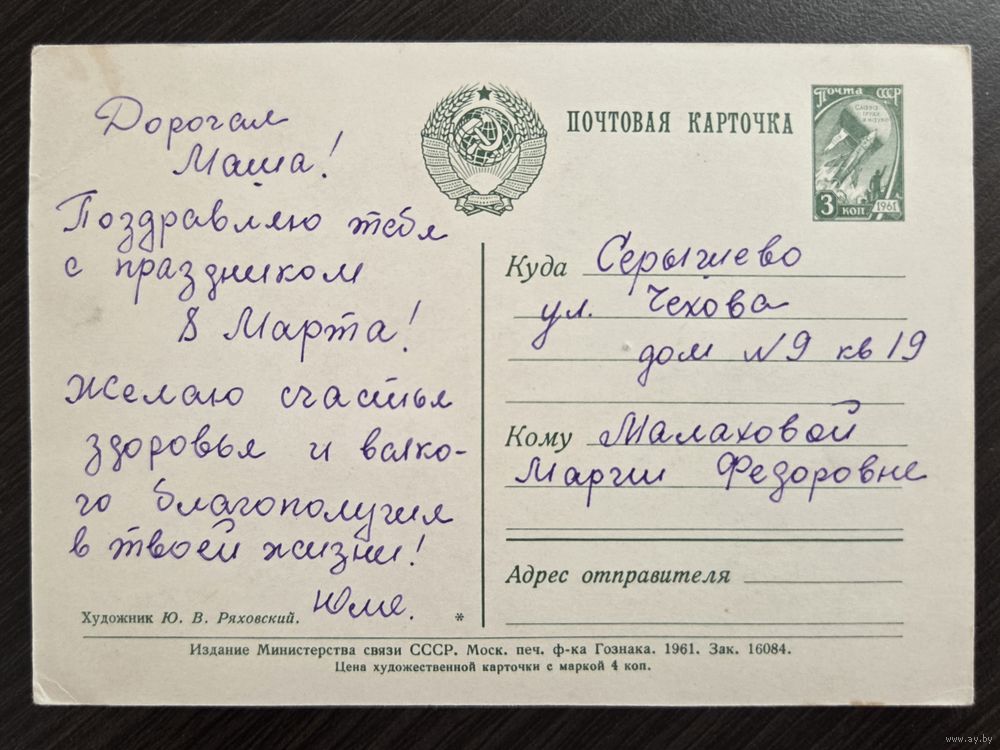 Дорогая
Маша!
Поздравляю тебя
с праздником
8 Марта!
Желаю счастья
здоровья и всяко-
го благополучия
в твоей жизни!
Художник Ю. В. Ряховский.
*
ПОЧТОВАЯ КАРТОЧКА
Почта СССР
СЛАВА
ТРУДУ
И НАУКЕ
3 КОП 1961
Куда Серышево
ул. Чехова
дом N9 кв 19
Кому Малаховой
Марии Федоровне
Адрес отправителя
Издание Министерства связи СССР. Моск. печ. ф-ка Гознака. 1961. Зак. 16084.
Цена художественной карточки с маркой 4 коп.
www.ay.by